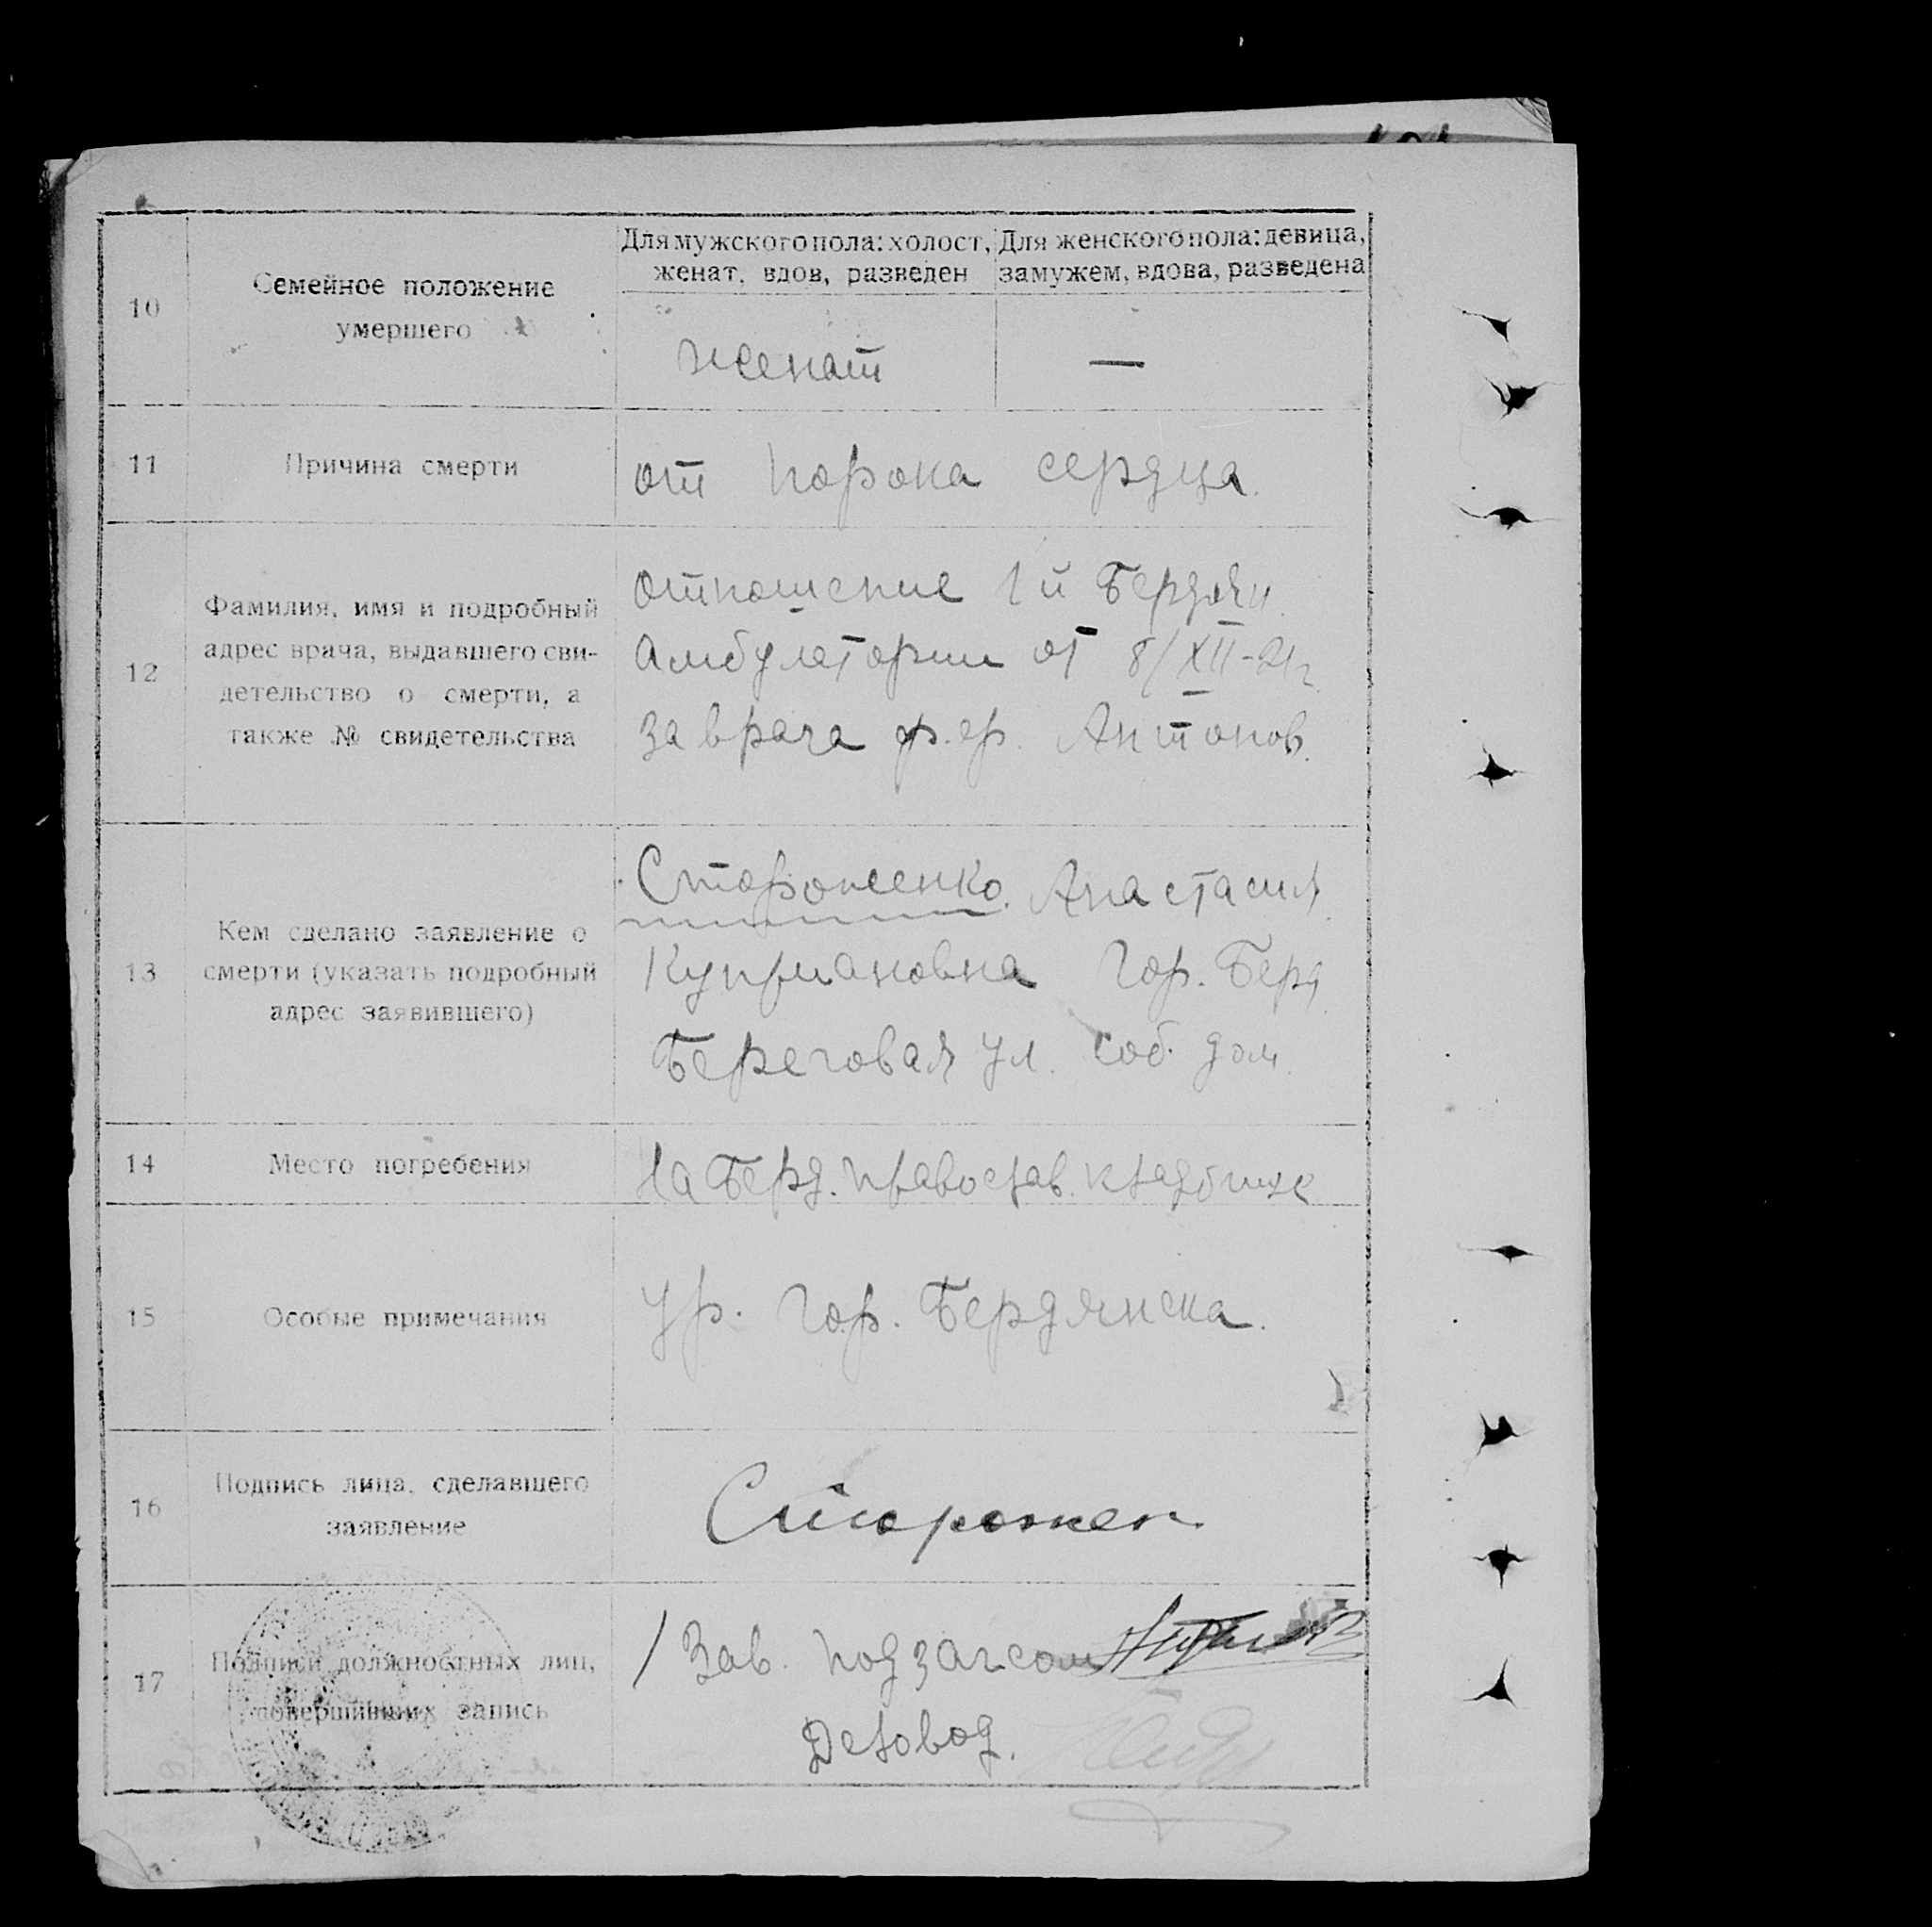 10
Семейное положение
умершего
Для мужского пола: холост,
женат, вдов, разведен
Для женского пола: девица,
замужем, вдова, разведена
женат
—
11
Причина смерти
от порока сердца.
12
Фамилия, имя и подробный
адрес врача, выдавшего сви-
детельство о смерти, а
также № свидетельства
отношение 1й Бердян.
Амбулатории от 8/XII-21г.
за врача ф.ер. Антонов.
13
Кем сделано заявление о
смерти (указать подробный
адрес заявившего)
Стороженко. Анастасия
Куприановна Гор. Берд.
Береговая ул. соб. дом.
14
Место погребения
На Берд. православ. кладбище
15
Особые примечания
Ур. гор. Бердянска.
16
Подпись лица, сделавшего
заявление
Сторожен
17
Подписи должностных лиц,
совершивших запись
/ Зав. подзагсом
Деловод.